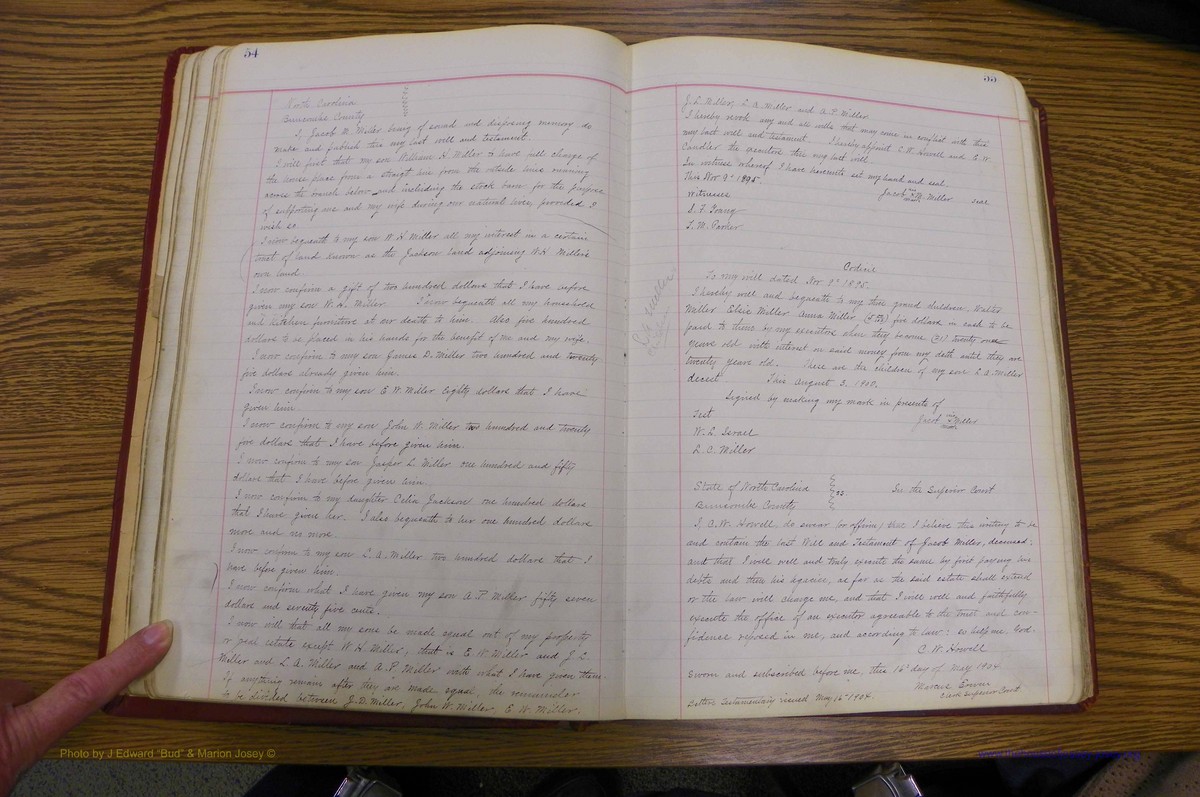 54
North Carolina
Buncombe County
I, Jacob M. Miller being of sound and disposing memory do
make and publish this my last will and testament.
I will first that my son William H Miller to have full charge of
the house place from a straight line from the outside lines running
across the branch below and including the stock barn for the purpose
of supporting me and my wife during our natural lives, provided I
wish so.
I now bequeath to my son W. H. Miller all my interest in a certain
tract of land known as the Jackson land adjoining W.H. Miller's
own land.
I now confirm a gift of two hundred dollars that I have before
given my son W. H. Miller. I now bequeath all my household
and kitchen furniture at our death to him. Also five hundred
dollars to be placed in his hands for the benefit of me and my wife.
I now confirm to my son James D. Miller two hundred and twenty
five dollars already given him.
I now confirm to my son E. W. Miller Eighty dollars that I have
given him.
I now confirm to my son John W. Miller two hundred and twenty
five dollars that I have before given him.
I now confirm to my son Jasper L. Miller one hundred and fifty
dollars that I have before given him.
I now confirm to my daughter Celia Jackson one hundred dollars
that I have given her. I also bequeath to her one hundred dollars
more and no more.
I now confirm to my son L. A. Miller two hundred dollars that I
have before given him.
I now confirm what I have given my son A. P. Miller fifty seven
dollars and seventy five cents.
I now will that all my sons be made equal out of my property
or real estate except W. H. Miller; that is E. W. Miller and J. L.
Miller and L. A. Miller and A. P. Miller with what I have given them.
if anything remains after they are made equal, the remainder
to be divided between J. D. Miller, John W. Miller, E. W. Miller,
55
J. L. Miller, L. A. Miller and A. P. Miller
I hereby revok any and all wills that may come in conflict with this
my last will and testament. I hereby appoint C. W. Howell and E. W.
Candler the executors this my last will.
In witness whereof I have hereunto set my hand and seal.
This Nov 9th 1895.
Jacob his x mark M. Miller seal
Witnesses
S. F. Young
T. M. Parker
Codicil
To my will dated Nov 9th 1895.
I hereby will and bequeath to my three grand children, Walter
Miller Elsie Miller Anna Miller five dollars in cash to be
paid to them by my executors when they become (21) twenty one
years old with interest on said money from my deth until they are
twenty years old. These are the children of my son L. A. Miller
deces'd. This August 3, 1900.
Signed by making my mark in presents of
Jacob his x mark Miller
Test
W. L. Israel
L. C. Miller
State of North Carolina
Buncombe County
ss.
In the Superior Court
I, C. W. Howell, do swear (or affirm) that I believe this writing to be
and contain the last Will and Testament of Jacob Miller, deceased;
and that I will well and truly execute the same by first paying his
debts and then his legacies, as far as the said estate shall extend
or the law will charge me, and that I will well and faithfully
execute the office of an executor agreeable to the trust and con-
fidence reposed in me, and according to law: so help me, God.
C. W. Howell
Sworn and subscribed before me, this 16th day of May 1904.
Marcus Erwin
Clerk Superior Court
Letters testamentary issued May 16th 1904.
Photo by J Edward "Bud" & Marion Josey ©